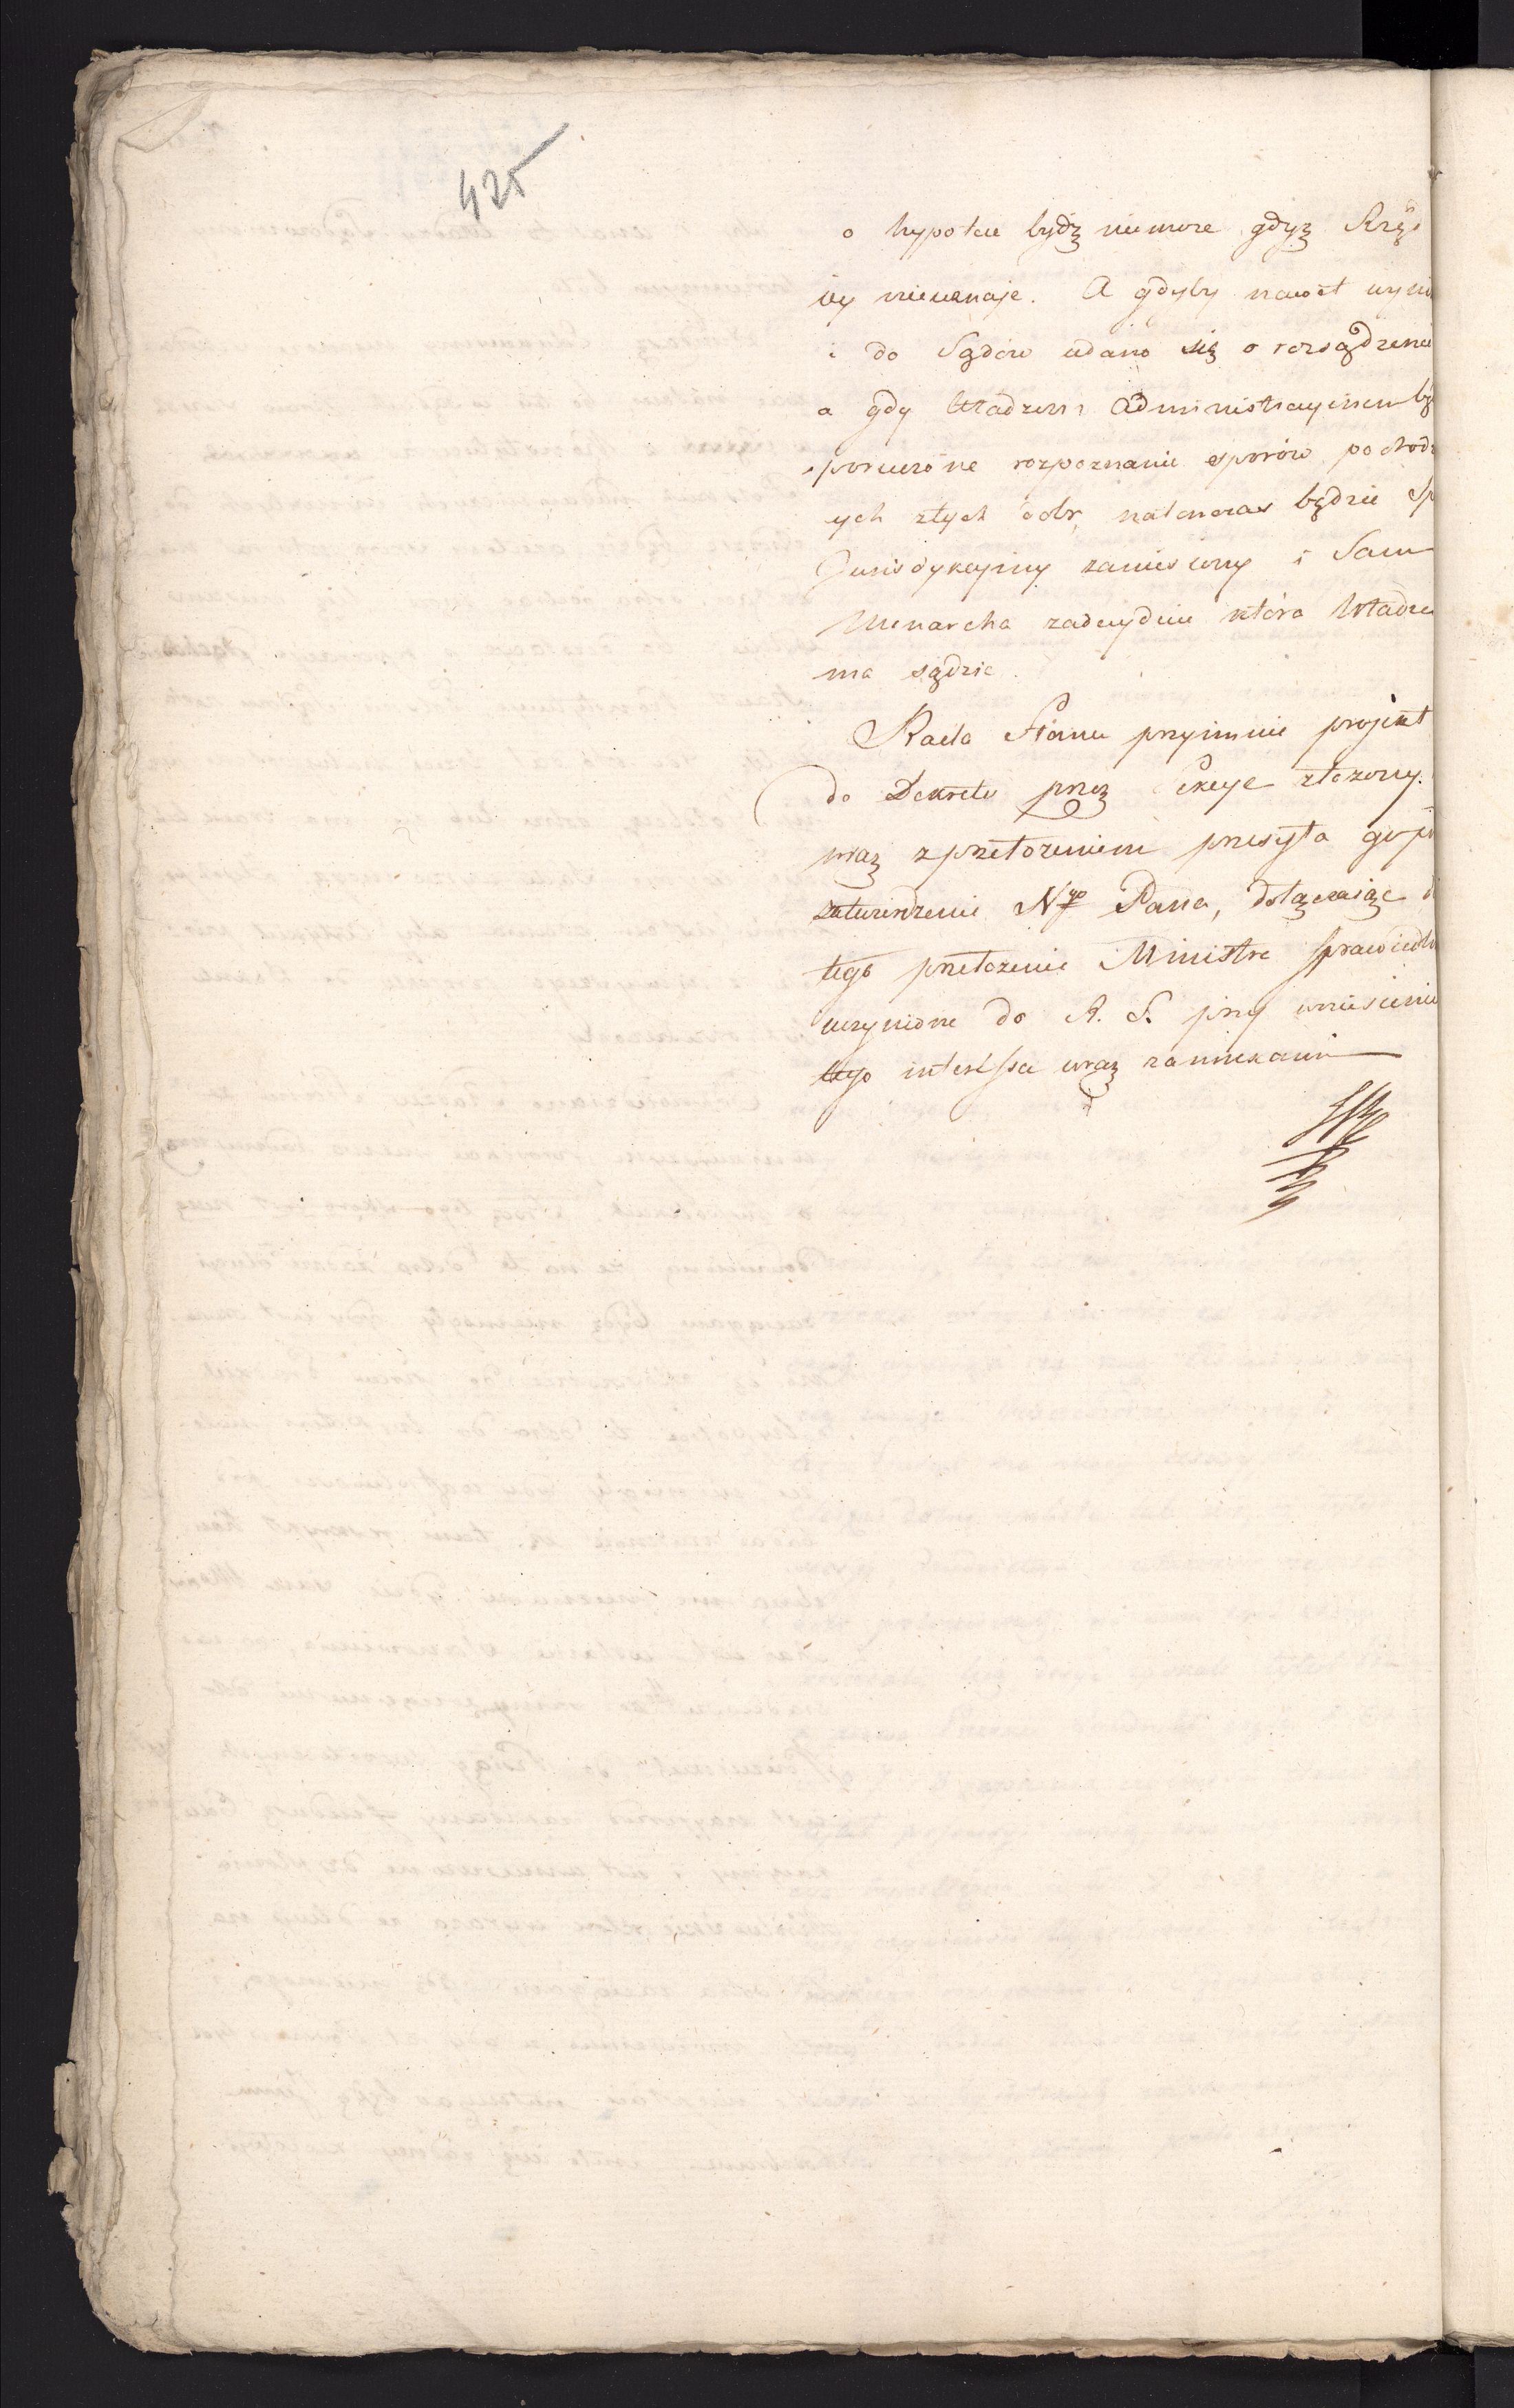 425
o hypotece bydz niemoze gdyz Rzą
iey nieuznaje. A gdyby nawet wyni
i do Sądow udano się o rozsądzenie
a gdy Władzom Administracyinem by
poruczone rozpoznanie sporów pochodz
ych ztych dobr, natenczas będzie Sp
Jurisdykcyiny zaniesiony i Sam
Monarcha zadecyduie która Władza
ma sądzic.
Rada Stanu przyimuie projekt
do Dekretu przez Sekcye złozony.
wraz zprzełozeniem przesyła go po
zatwierdzenie Nygo Pana, dołączaiąc d
tego przełozenie Ministra Sprawiedli
uczynione do R. S. przy wniesieniu
tego interessu wraz zannexami